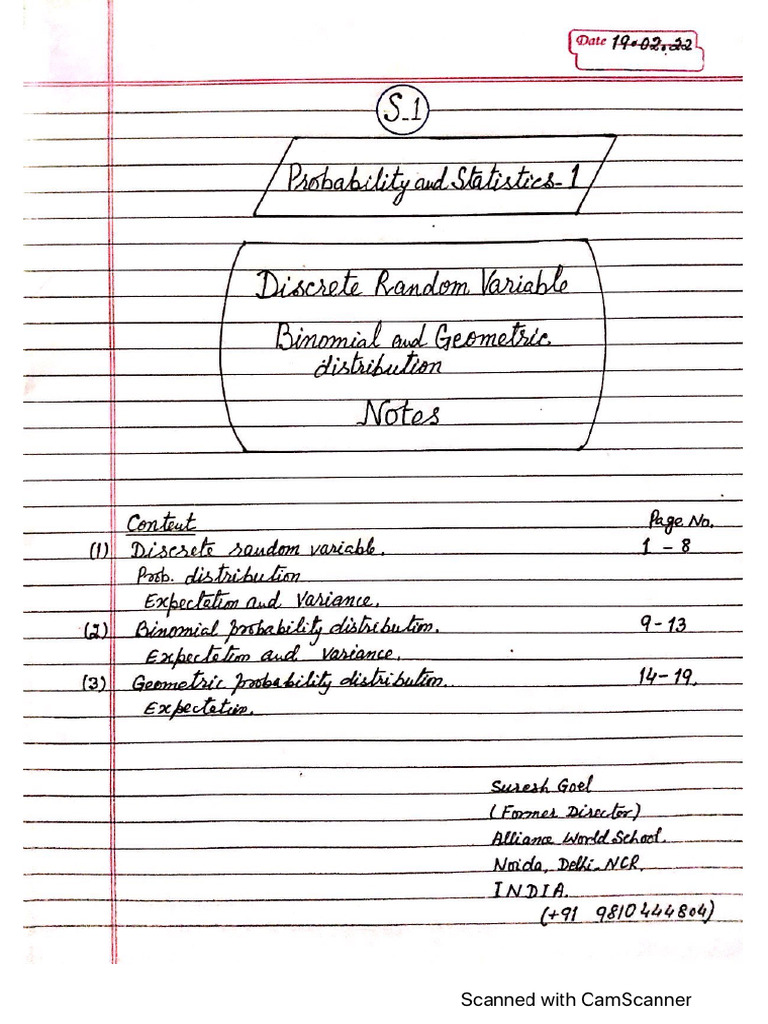 Date 19.02.22
S-1
Probability and Statistics-1
Discrete Random Variable
Binomial and Geometric
distribution
Notes
Content Page No.
(1) Discrete random variable. 1 - 8
Prob. distribution
Expectation and Variance.
(2) Binomial probability distribution. 9-13
Expectetion and Variance.
(3) Geometric probability distribution. 14-19.
Expectation.
Suresh Goel
(Former Director)
Alliance World School.
Noida, Delhi-NCR,
INDIA.
(+91 9810444804)
Scanned with CamScanner